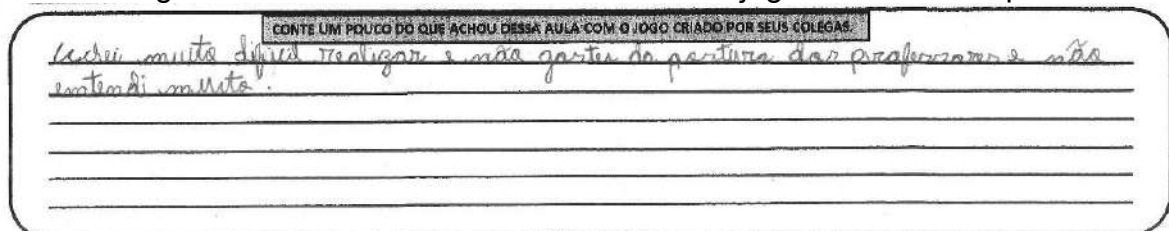 CONTE UM POUCO DO QUE ACHOU DESSA AULA COM O JOGO CRIADO POR SEUS COLEGAS.
Achei muito dificil realizar e não gostei da postura dos professores e não
entendi muito.